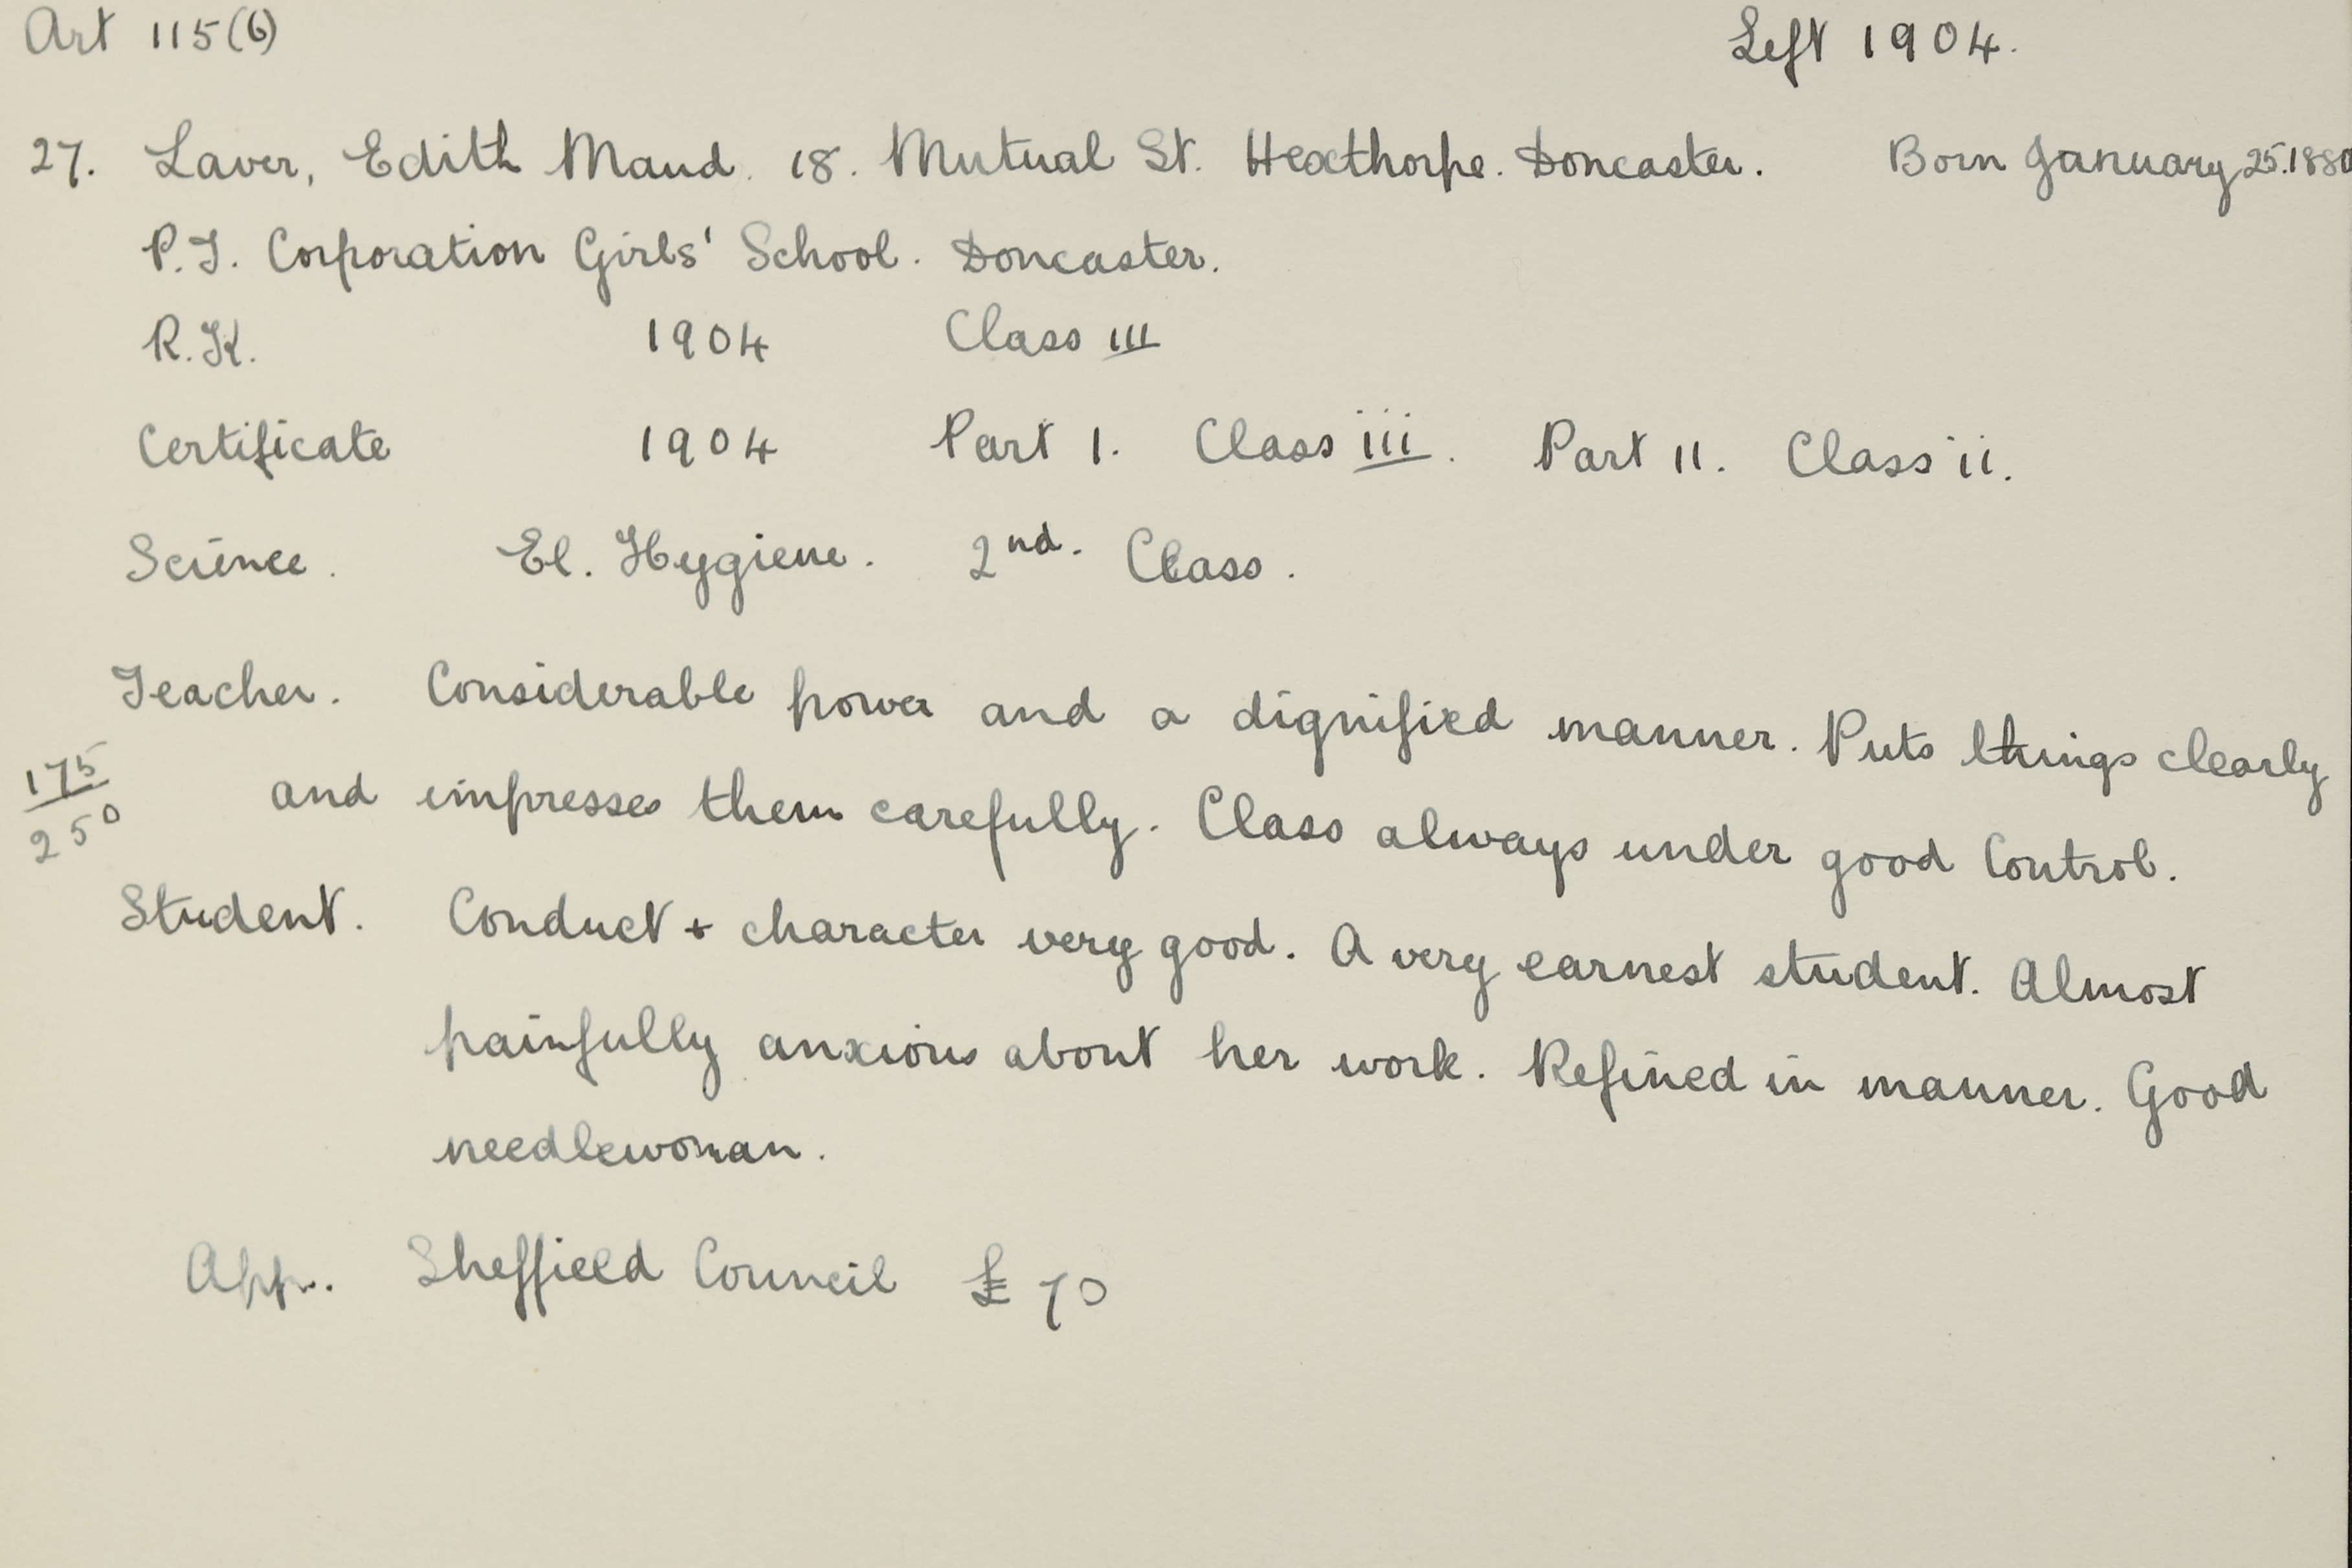 Art 115(6)
Left 1904.
27. Laver, Edith Maud. 18. Mutual St. Hexthorpe. Doncaster. Born January 25.1880
P.T. Corporation Girls' School. Doncaster.
R.K. 1904 Class III
Certificate 1904 Part I. Class iii. Part II. Class ii.
Science. El. Hygiene. 2nd. Class.
Teacher. Considerable power and a dignified manner. Puts things clearly
175/250 and impresses them carefully. Class always under good Control.
Student. Conduct + character very good. A very earnest student. Almost
painfully anxious about her work. Refined in manner. Good
needlewoman.
App. Sheffield Council £70